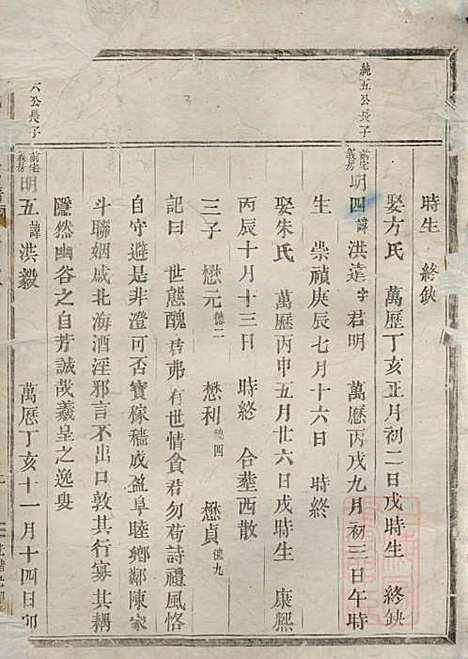 時生 終缺
娶方氏 萬歷丁亥正月初二日戌時生 終缺
純五公長子
前宅義房 明四 諱洪遠字君明 萬歷丙戌九月初三日午時
生 崇禎庚辰七月十六日 時終
娶朱氏 萬歷丙申五月廿六日戌時生 康熙
丙辰十月十三日 時終 合塟西散
三子 懋元 德二 懋利 德四 懋貞 德九
記曰 世態醜君弗有世情貪君勿苟詩禮風恪
自守避是非澄可否寶稼穡成盈阜睦鄉鄰陳家
斗聯姻戚北海酒淫邪言不出口敦其行寡其耦
隱然幽谷之自芳誠哉羲皇之逸叟
六公長子
前宅義房 明五 諱洪毅 萬歷丁亥十一月十四日卯